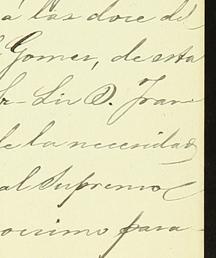 á las doce del
Gomez, de esta
Sr. Dn D. Fran
de la necesidad
al Supremo
para